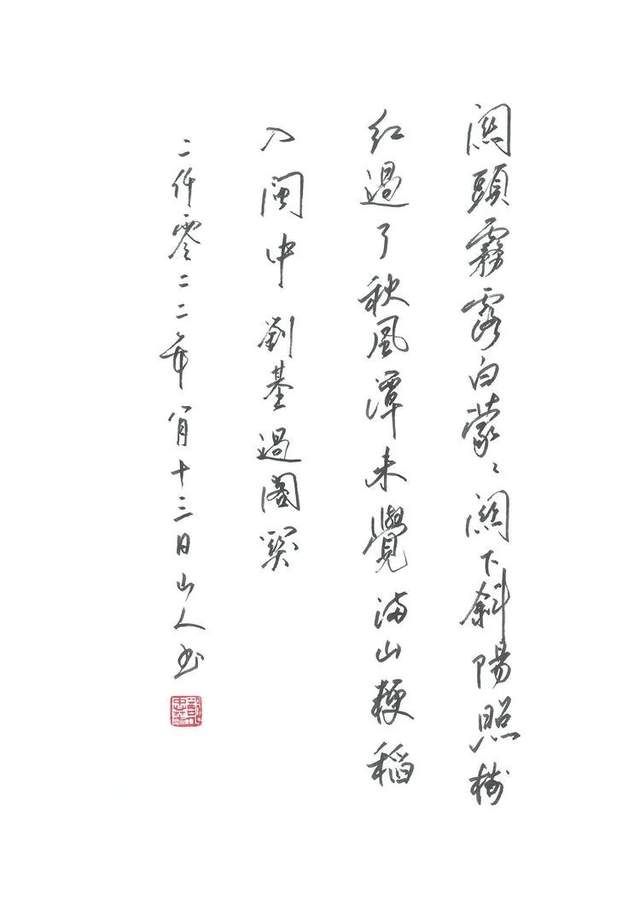 關頭霧露白蒙〻關下斜陽照樹
紅過了秋風潭未覺滿山粳稻
入閩中 劉基過閣
二仟零二二年八月十三日山人书